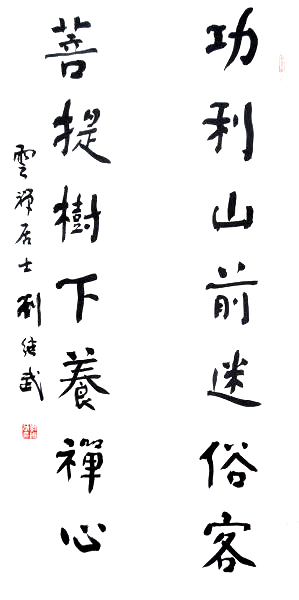 功利山前迷俗客
菩提樹下養禪心
雲禅居士劉继武